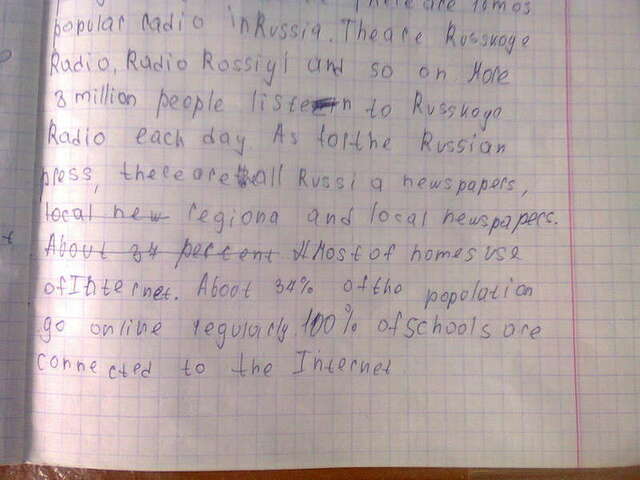 There are
popular radio in Russia. The are Russkoge
Radio, Radio Rossiyi and so on More
8 million people listen to Russkoya
Radio each day. As for the Russian
press, there are all Russia newspapers,
local new regiona and local newspapers.
About 34 percent Most of homes use
of Internet. About 34% of tho population
go online regularly. 100% of schools are
connected to the Internet